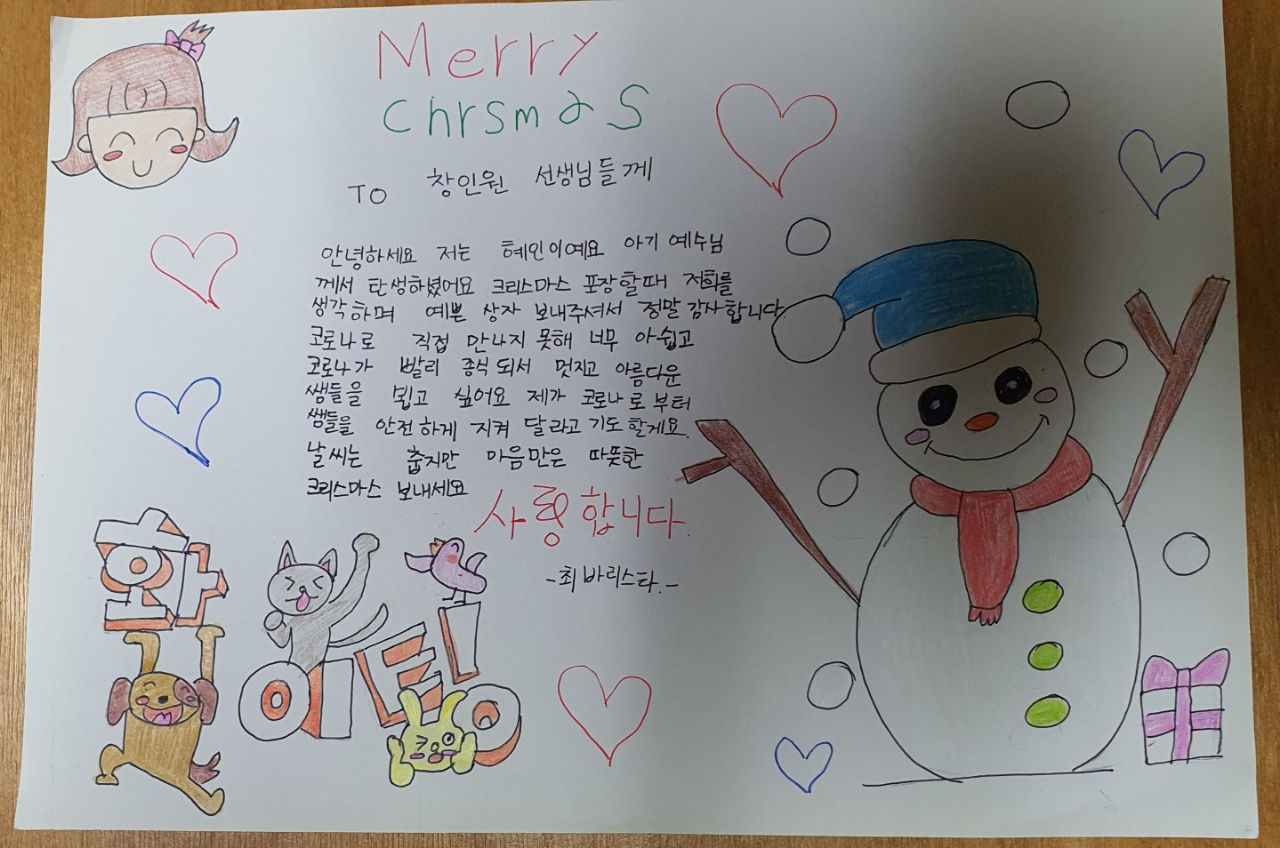 Merry
chrsmas
TO 창인원 선생님들께
안녕하세요 저는 혜인이예요 아기 예수님
께서 탄생하셨어요 크리스마스 포장할때 저희를
생각하며 예쁜 상자 보내주셔서 정말 감사합니다
코로나로 직접 만나지 못해 너무 아쉽고
코로나가 빨리 종식되서 멋지고 아름다운
쌤들을 뵙고 싶어요 제가 코로나로부터
쌤들을 안전하게 지켜 달라고 기도할게요.
날씨는 춥지만 마음만은 따뜻한
크리스마스 보내세요
사랑합니다.
-최바리스타.-
화이팅